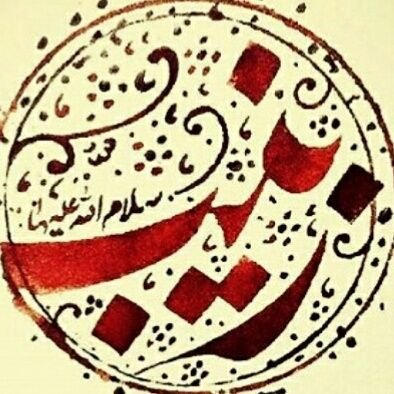 زینب
سلام الله علیها